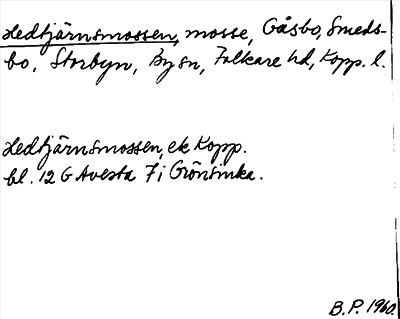 Hedtjärnsmossen, mosse, Gåsbo, Smeds-
bo, Storbyn, By sn, Folkare hd, Kopp. l.
Hedtjärnsmossen, ek Kopp.
bl. 12 G Avesta 7 i Grönsinka.
B.P. 1960.